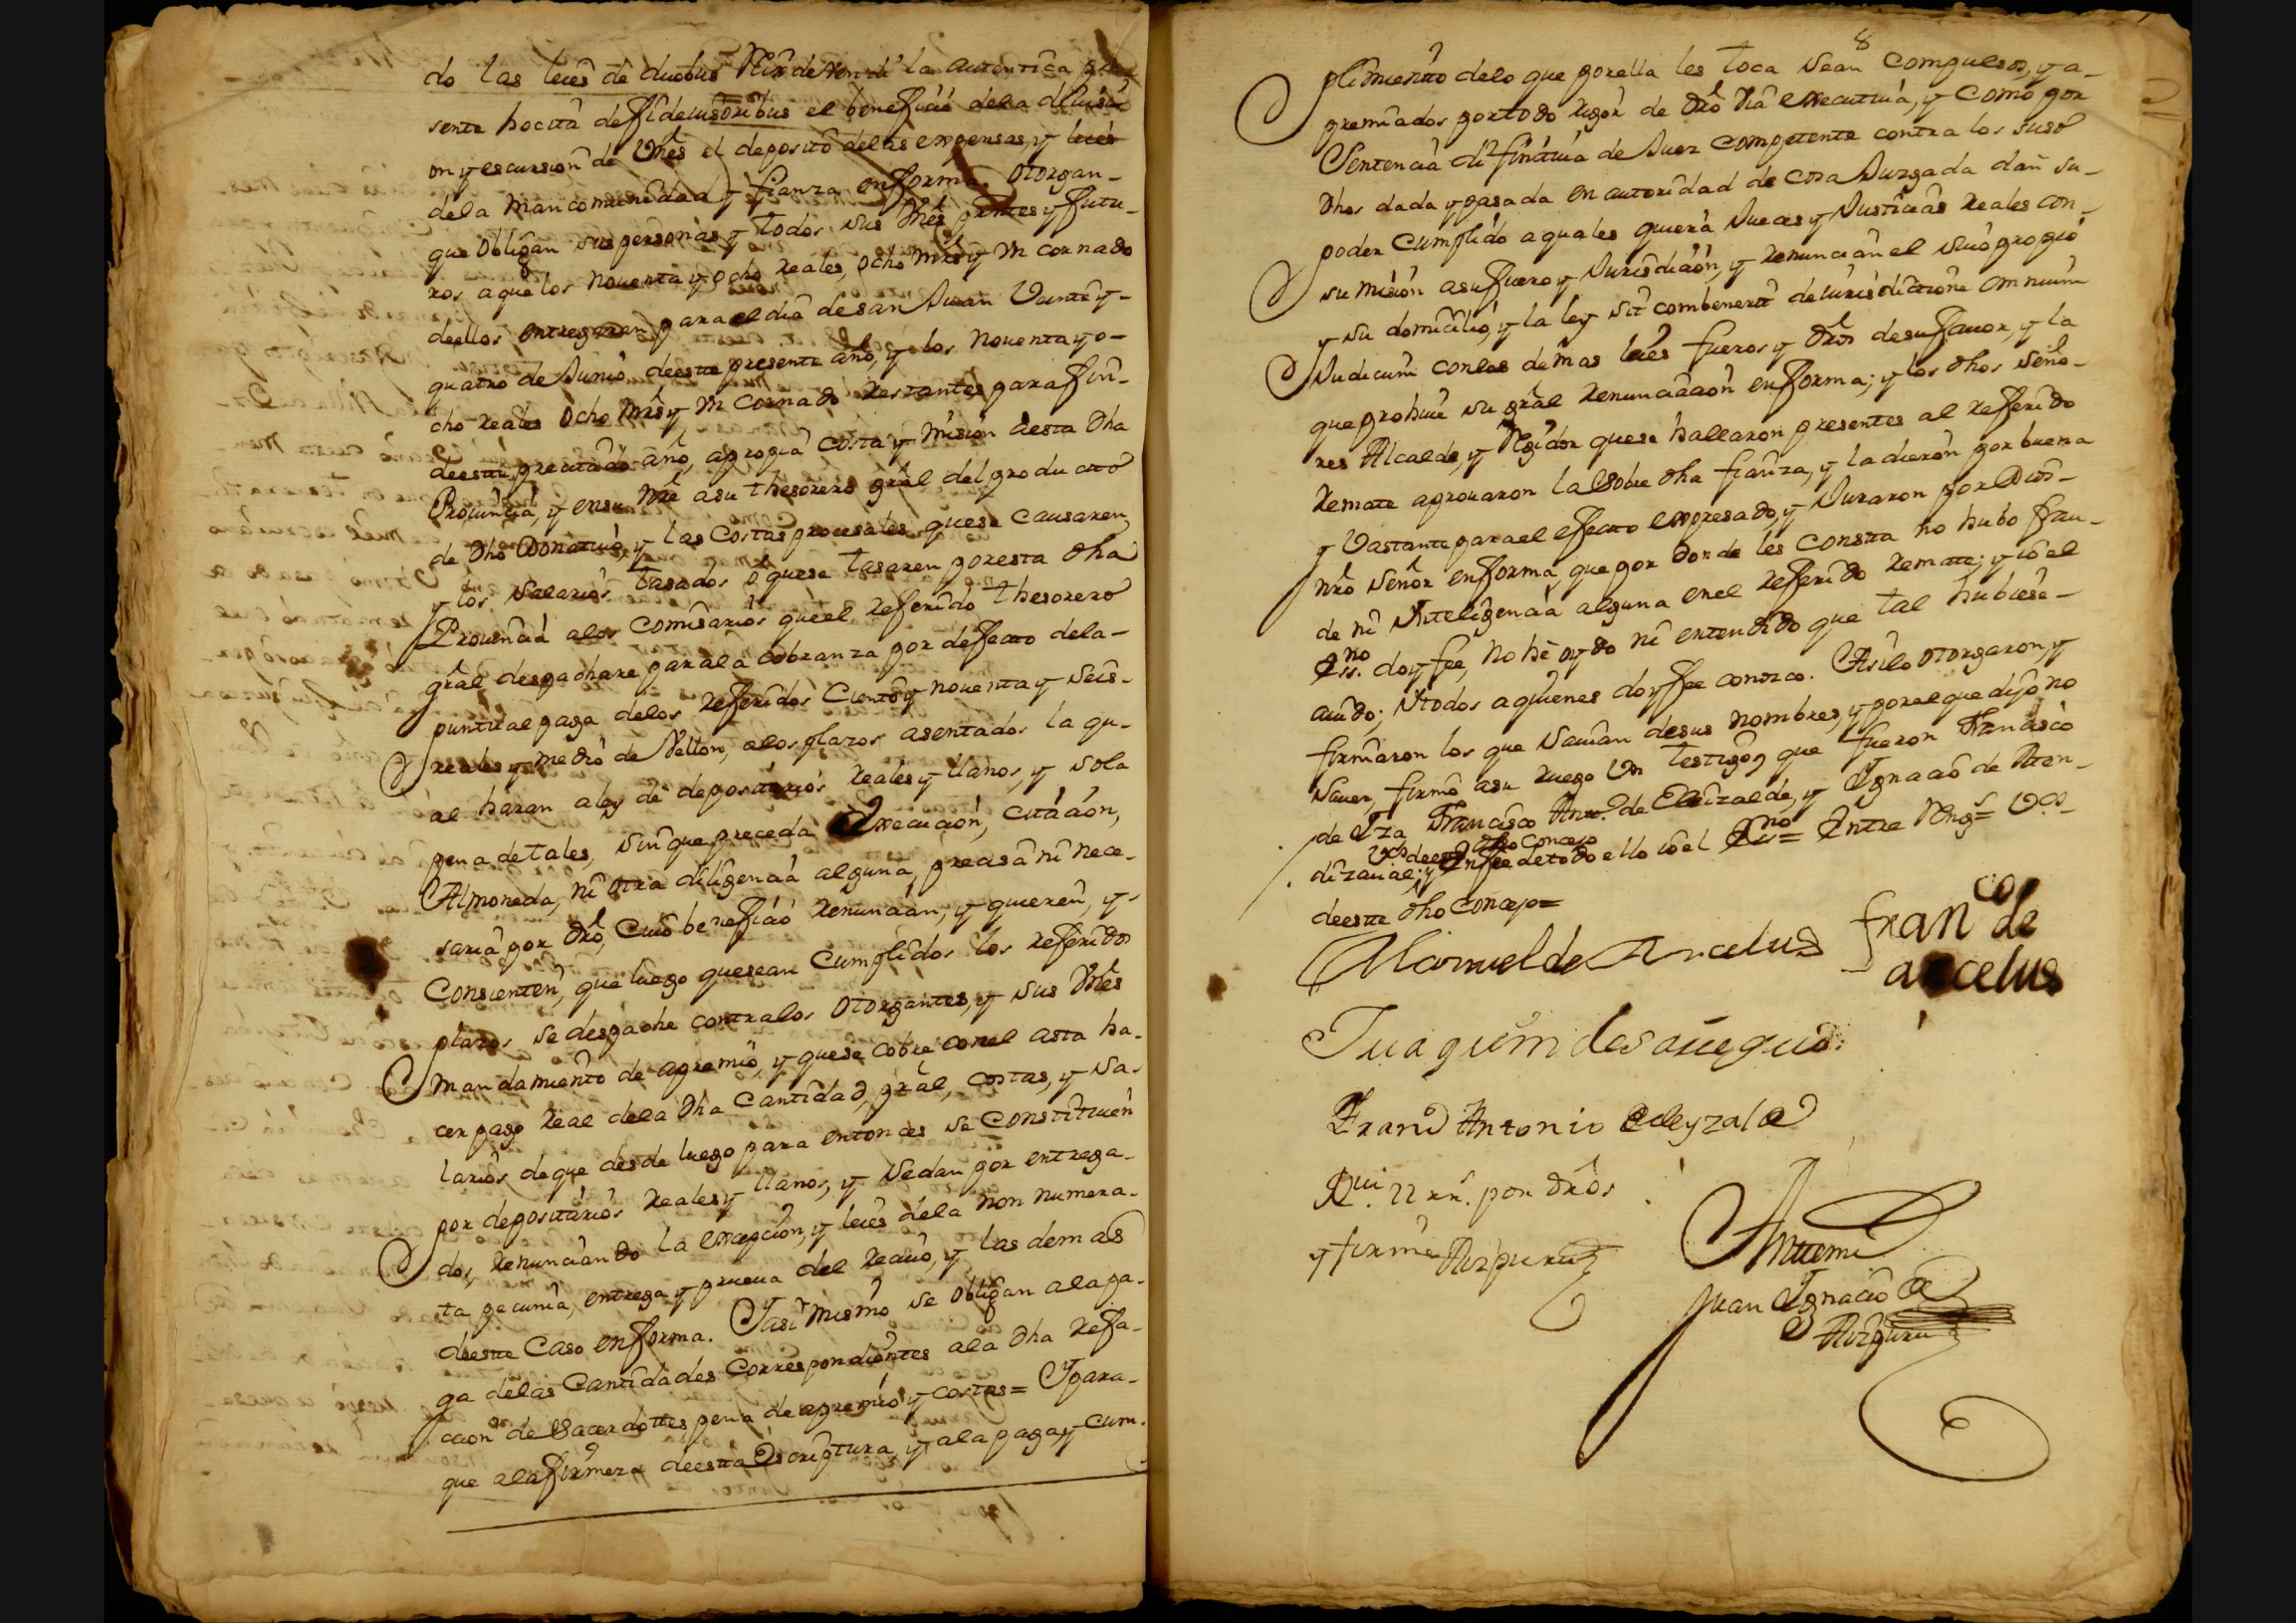 do las leies de duobus Reis de vendi la autentica pre
sente hocita de fidejusoribus el beneficio dela diuisi
on y escursion de Vnes el deposito delas expensas, y leies
dela mancomunidad y fianza en forma. Otorgan-
que obligan sus personas y todos sus Vnes presntes y futu-
ros a que los noventa y ocho reales, ocho mrs y m cornado
deellos entregaran para el dia de san Juan Veinte y-
quatro de Junio deeste presente año, y los noventa y o-
cho reales ocho mrs y m cornado restantes para fin-
deeste precitado año, a propia costa y mision desta dha
Prouincia, y en su nre a su thesorero gral del producto
de dho Donatiuo, y las costas procesales que se causaren
y los salarios tasados o que se tasaren por esta dha
Prouincia a los comisarios que el referido thesorero
gral despachare para la cobranza por defecto dela-
puntual paga delos referidos ciento y noventa y seis-
reales y medio de Vellon, a los plazos asentados la qu-
al haran a ley de depositarios reales y llanos, y sola
pena de tales, sin que preceda Execucion, citacion,
Almoneda, ni otra diligencia alguna, precisa ni nece-
saria por dro, cuio beneficio renuncian, y quieren, y-
consienten, que luego que sean cumplidos los referidos
plazos se despache contra los otorgantes, y sus Vnes
mandamiento de apremio, y que se cobre con el asta ha-
cer pago real dela dha cantidad, pral, costas, y sa-
larios de que desde luego para entonces se constituien
por depositarios reales y llanos, y se dan por entrega-
dos, renunciando la excepcion, y leies dela non numera-
ta pecunia, entrega y prueua del reciuo, y las demas
deeste caso en forma. Y asi mismo se obligan a la pa-
ga delas cantidades correspondientes a la dha refa-
ccion de sacerdottes pena de apremio y costas= Y para-
que a la firmeza deesta Escriptura, y a la paga y cum-
8
plimiento delo que por ella les toca sean compulsos, y a-
premiados por todo rigor de dro via executiua, y como por
Sentencia difinitiua de Juez competente contra los suso
dhos dada y pasada en autoridad de cosa Juzgada dan su-
poder cumplido a quales quiera Jueces y Justicias reales con-
su mision a su fuero y Jurisdicion, y renuncian el suio propio
y su domicilio, y la ley sit combenerit de iurisdictione omnium
Judicum con las demas leies fueros y dros de su fauor, y la
que prohiue su gral renunciacion en forma; y los dhos seño-
res Alcalde, y Rejidor que se hallaron presentes al referido
remate aprouaron la sobre dha fianza, y la dieron por buena
y Vastante para el efecto expresado, y Juraron por Dios-
nro señor en forma, que por donde les consta no hubo frau-
de ni Inteligencia alguna en el referido remate; y io el
Ess.no doy fee, no hè oydo ni entendido que tal hubiese-
auido; Y todos a quienes doy fee conozco. Asi lo otorgaron, y
firmaron los que sauian de sus nombres, y por el que dijo no
sauer, firmo a su ruego Vn testigo, que fueron Francisco
de Yza Francisco Anto. de Eleizalde, y Ygnacio de Aten-
Vos deeste dho concejo
dizaual; y En fee de todo ello io el Ess.no= Entre Reng.s= Vos-
deeste dho concejo=
Manuel de Arcelus
fran.co de
arcelus
Juaquim de sauequio
Fran.co Antonio Eleyzalde
Rui. 22 rs. por dros
y firme Aizpuru
Antemi
Juan Ygnacio de
Aizpuru